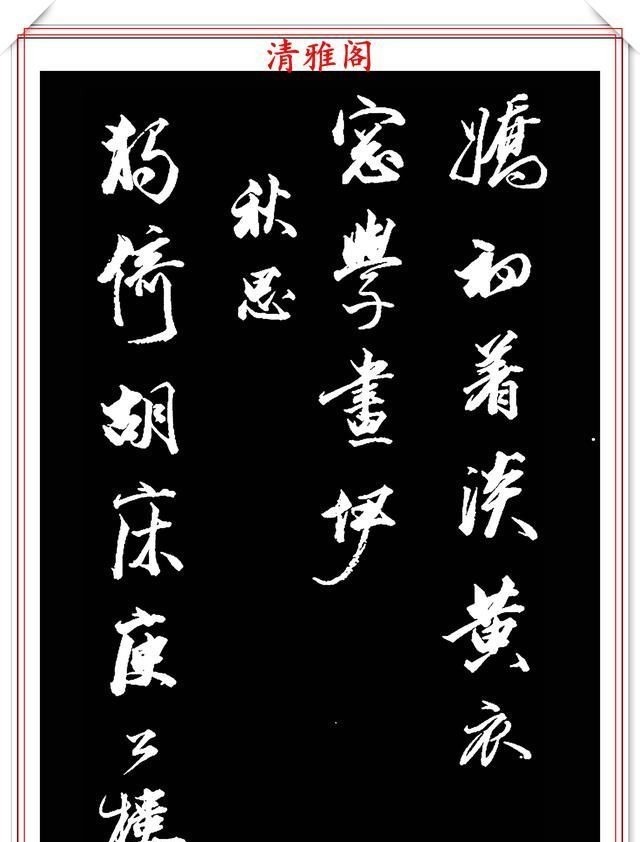 清雅阁
嬌初着淡黄衣
窓學畫伊
秋思
獨倚胡床庾公樓